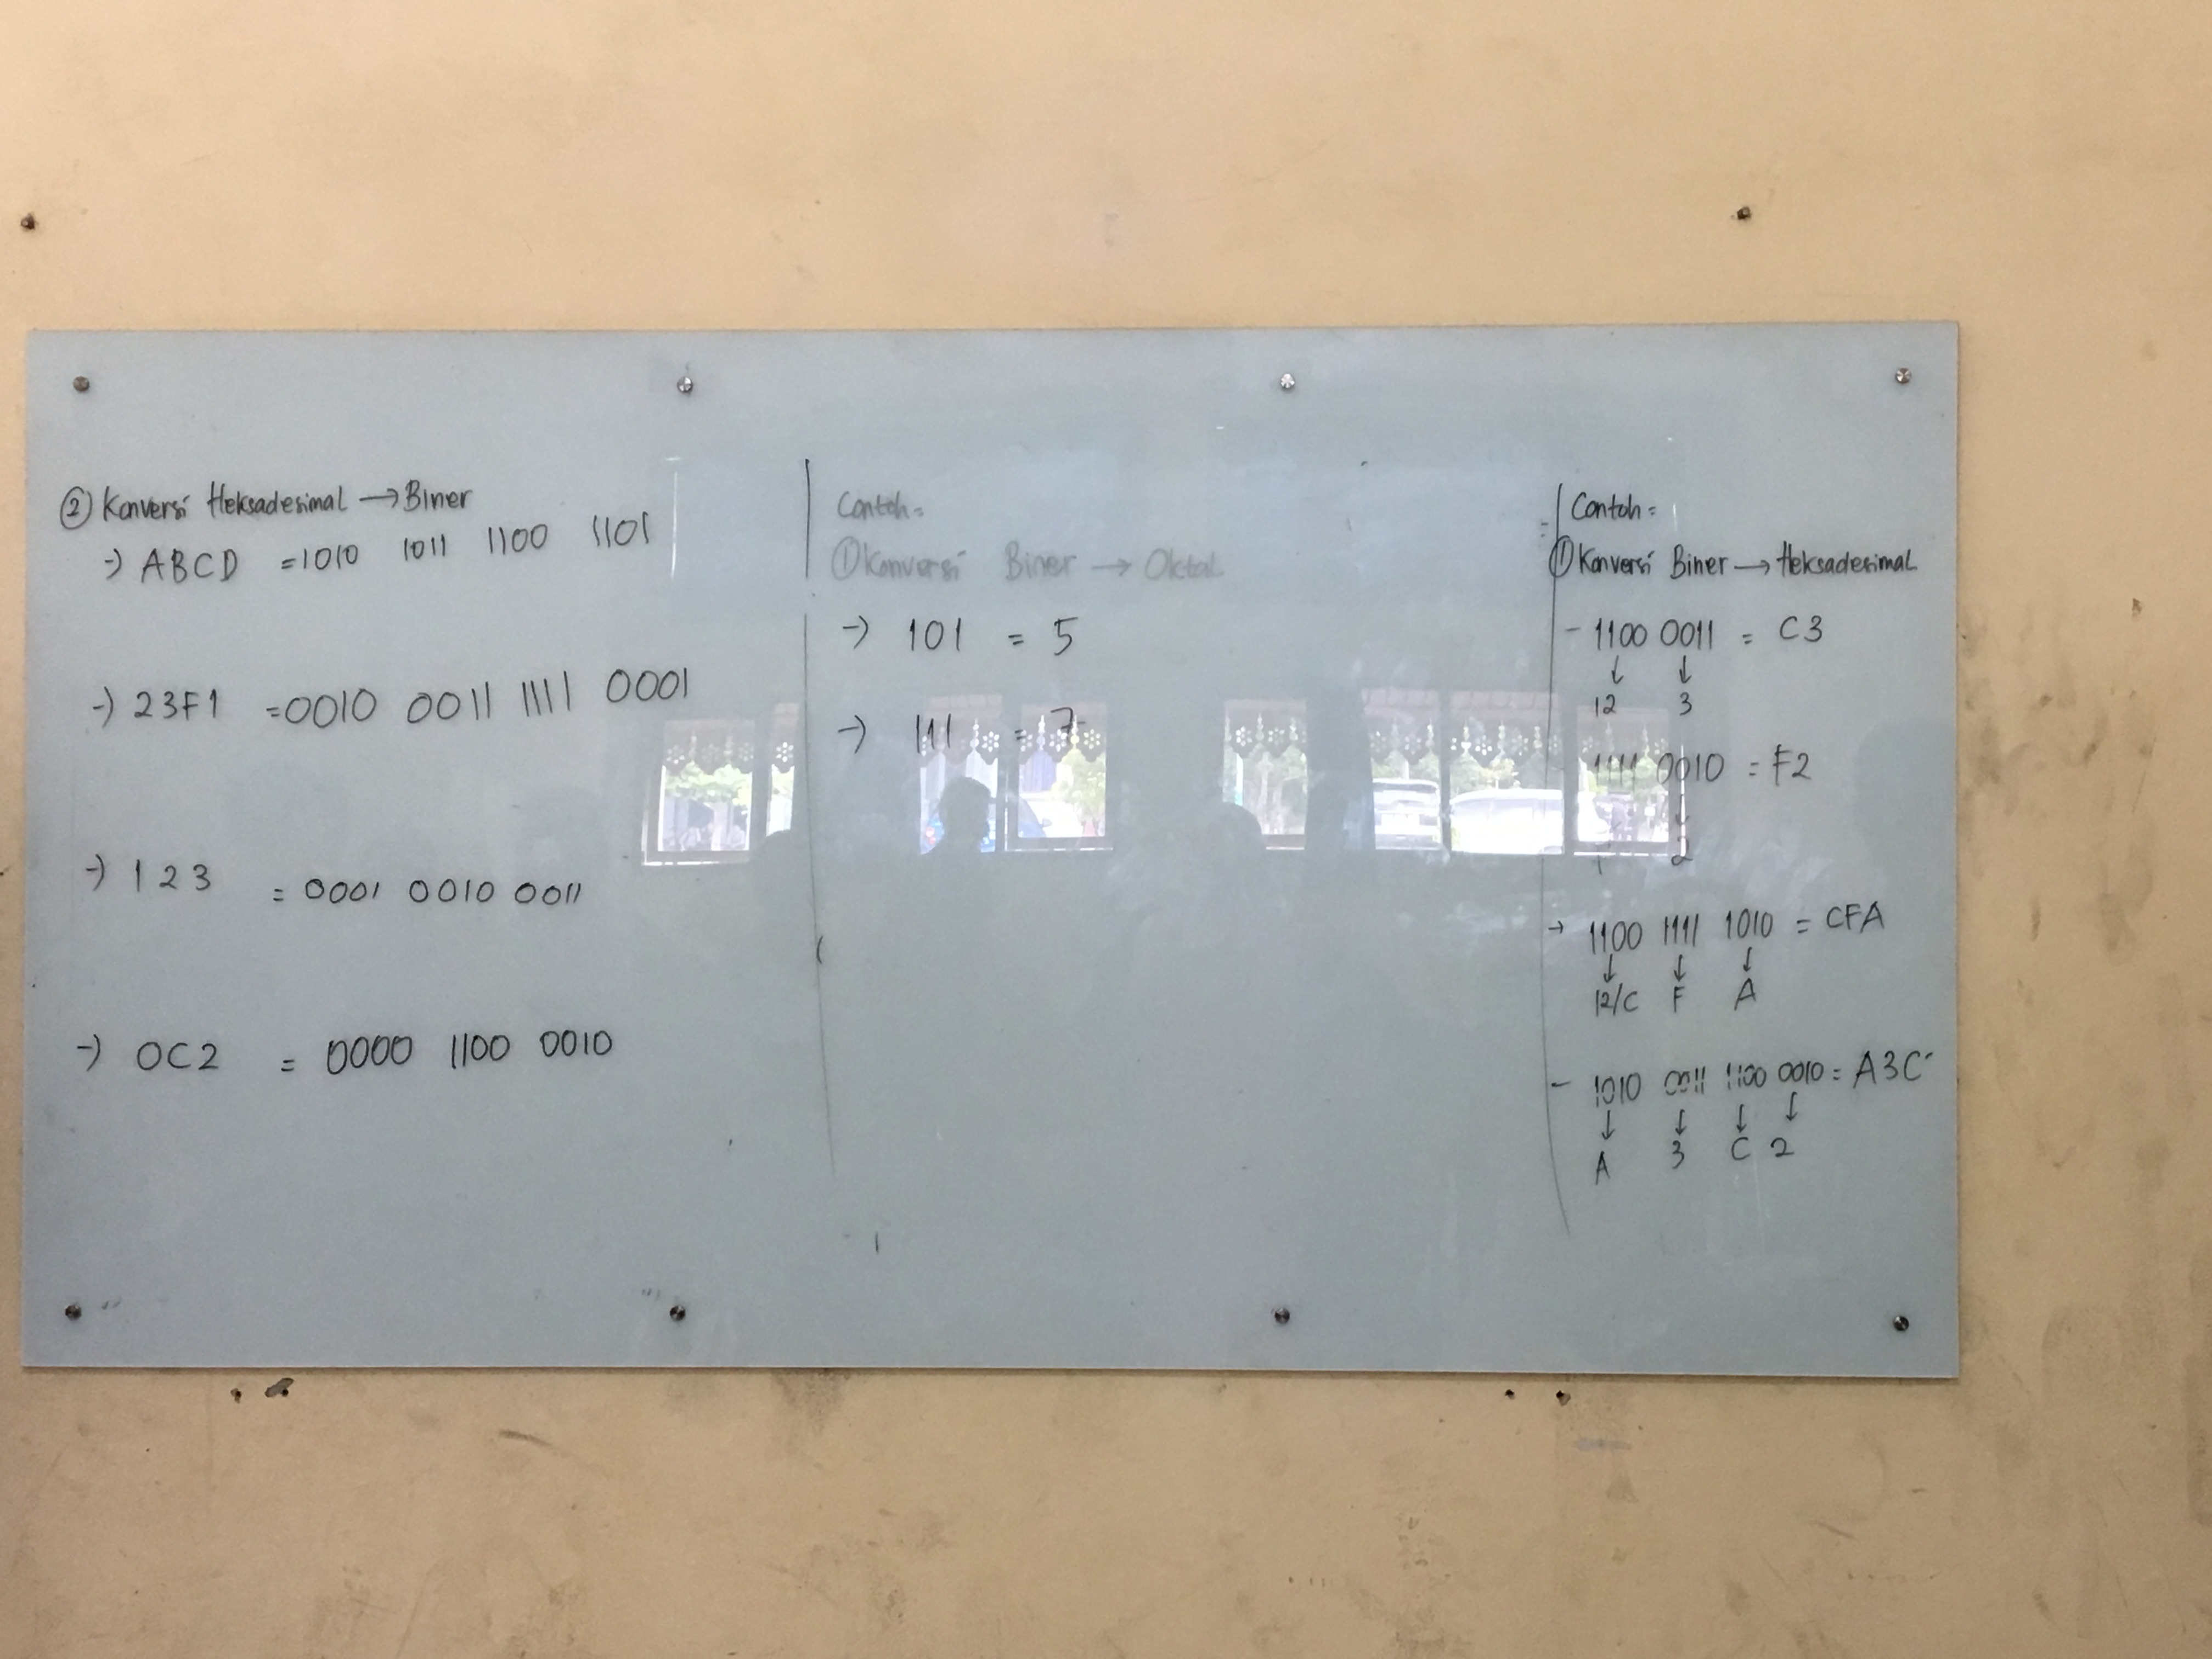 ② Konversi Heksadesimal → Biner
→ ABCD = 1010 1011 1100 1101
→ 23F1 = 0010 0011 1111 0001
→ 123 = 0001 0010 0011
→ 0C2 = 0000 1100 0010
Contoh =
① Konversi Biner → Oktal
→ 101 = 5
→ 111 = 7
Contoh =
① Konversi Biner → Heksadesimal
- 1100 0011 = C3
↓ ↓
12 3
1111 0010 = F2
↓
2
→ 1100 1111 1010 = CFA
↓ ↓ ↓
12/C F A
- 1010 0011 1100 0010 = A3C
↓ ↓ ↓ ↓
A 3 C 2